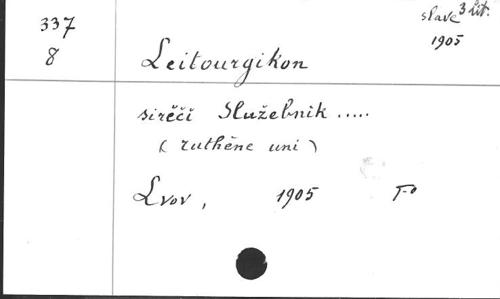 337
8
slave 3 lit.
1905
Leitourgikon
sirěčí Služebnik .....
( ruthène uni )
Lvov, 1905 Fº